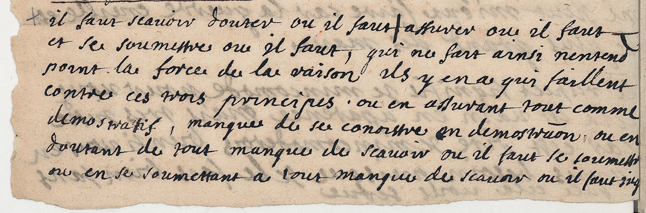 il faut scavoir douter ou il faut, assurer ou il faut
et se soumettre ou il faut, qui ne fait ainsi n'entend
point la force de la raison ils y en a qui faillent
contre ces trois principes. ou en assurant tout comme
demostratif, manque de se conoistre en demostration, ou en
doutant de tout manque de scavoir ou il faut se soumettre
ou en se soumettant a tout manque de scavoir ou il faut jug